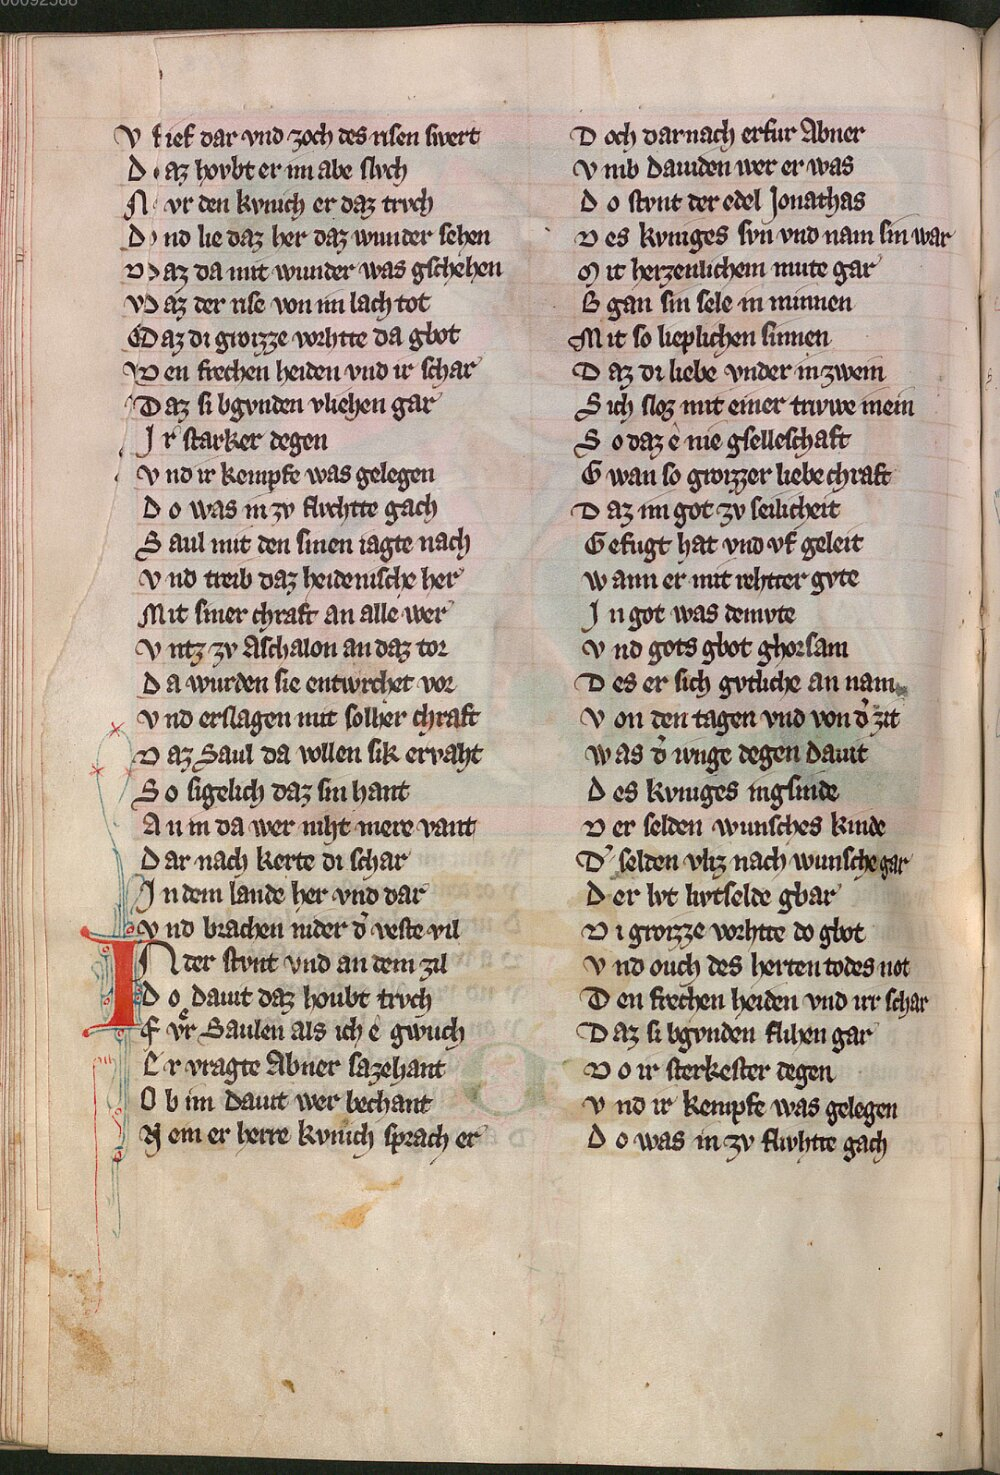 00092588
V lief dar vnd zoch des risen swert
D az hovbt er im abe slvch
N vr den kvnich er daz trvch
D nd lie daz her daz wunder sehen
D az da mit wunder was gschehen
D az der rise von im lach tot
D az di groizze vorhtte da gbot
D en frechen heiden vnd ir schar
D az si bgvnden vliehen gar
I r starker degen
V nd ir kempfe was gelegen
D o was in zv flvchtte gach
S aul mit den sinen iagte nach
V nd treib daz heidenische her
M it siner chraft an alle wer
V ntz zv Aschalon an daz tor
D a wurden sie entwrchet vor
V nd erslagen mit solher chraft
D az Saul da vollen sik ervaht
S o sigelich daz sin hant
A n in da wer niht mere vant
D ar nach kerte di schar
I n dem lande her vnd dar
V nd brachen nider d̾ veste vil
I N der stvnt vnd an dem zil
D o dauit daz houbt trvch
F vͤr Saulen als ich ê gwuch
E r vragte Abner sazehant
O b im dauit wer bechant
N em er herre kvnich sprach er
D och darnach erfur Abner
V mb dauiden wer er was
D o stvnt der edel Jonathas
D es kvniges svn vnd nam sin war
M it herzenlichem mute gar
B gan sin sele in minnen
M it so lieplichen sinnen
D az di liebe vnder in zwein
S ich sloz mit einer trivwe mein
S o daz ê nie gselleschaft
G wan so groizzer liebe chraft
D az im got zv seilicheit
G efugt hat vnd vf geleit
W ann er mit rehtter gvte
I n got was demvte
V nd gots gbot ghorsam
D es er sich gvtliche an nam
V on den tagen vnd von d̾ zit
W as d̾ ivnge degen dauit
D es kvniges ingsinde
D er selden wunsches kinde
D̾ selden vliz nach wunsche gar
D er lvt livtselde gbar
D i groizze vorhtte do gbot
V nd ouch des herten todes not
D en frechen heiden vnd irr schar
D az si bgvnden flihen gar
D o ir sterkester degen
V nd ir kempfe was gelegen
D o was in zv flivhtte gach